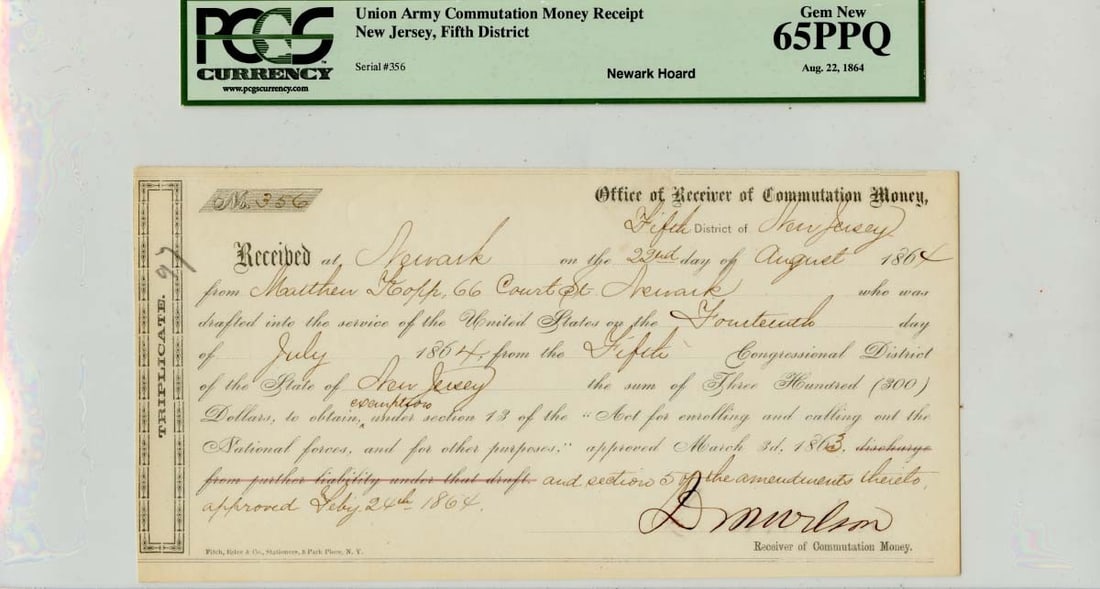 PCGS
CURRENCY
www.pcgscurrency.com
Union Army Commutation Money Receipt
New Jersey, Fifth District
Serial #356
Newark Hoard
Gem New
65PPQ
Aug. 22, 1864
TRIPLICATE. 97
No. 356
Office of Receiver of Commutation Money,
Fifth District of New Jersey
Received at Newark on the 22nd day of August 1864
from Matthew Kopp, 66 Court St Newark who was
drafted into the service of the United States on the Fourteenth day
of July 1864, from the Fifth Congressional District
of the State of New Jersey the sum of Three Hundred (300)
exemption
Dollars, to obtain, under section 13 of the "Act for enrolling and calling out the
National forces, and for other purposes," approved March 3d, 1863, discharge
from further liability under that draft. and section 5 of the amendments thereto,
approved Feby 24th 1864.
Receiver of Commutation Money.
Fitch, Estee & Co., Stationers, 3 Park Place, N. Y.